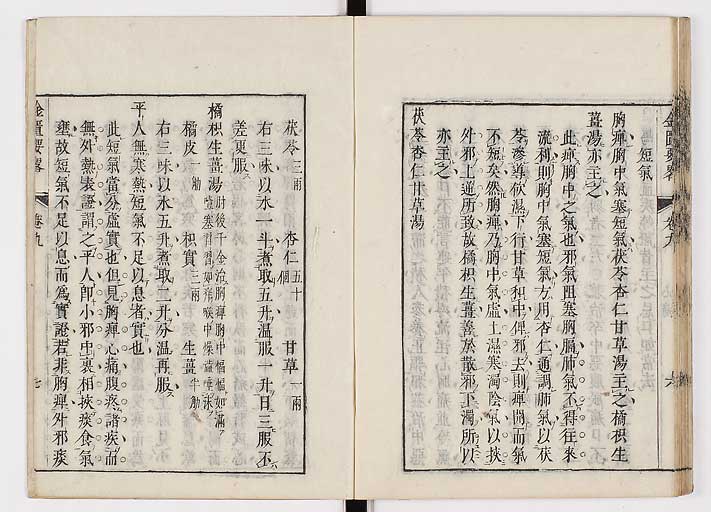 金匱要畧 卷九 六
短氣
胸痺胸中氣塞短氣茯苓杏仁甘草湯主之橘枳生
薑湯亦主之
此痺胸中之氣也邪氣阻塞胸膈肺氣不得往來
流利則胸中氣塞短氣方用杏仁通調肺氣以茯
苓滲導飲濕下行甘草和中俾邪去則痺開而氣
不短矣然胸痺乃胸中氣虛土濕寒濁陰氣以挾
外邪上逆所致故橘枳生薑善於散邪下濁所以
亦主之
茯苓杏仁甘草湯
茯苓三兩 杏仁五十個 甘草一兩
右三味以水一斗煮取五升温服一升日三服不
差更服
橘枳生薑湯肘後千金治胸痺胸中愊愊如滿噎塞習習如痒喉中燥唾沫
橘皮一觔 枳實三兩 生薑半觔
右三味以水五升煮取二升分温再服
平人無寒熱短氣不足以息者實也
此短氣當分虛實也但見胸痺心痛腹疼諸疾而
無外熱表證謂之平人卽小邪中裏相挾痰食氣
壅故短氣不足以息而爲實證若非胸痺外邪痰
金匱要畧 卷九 七